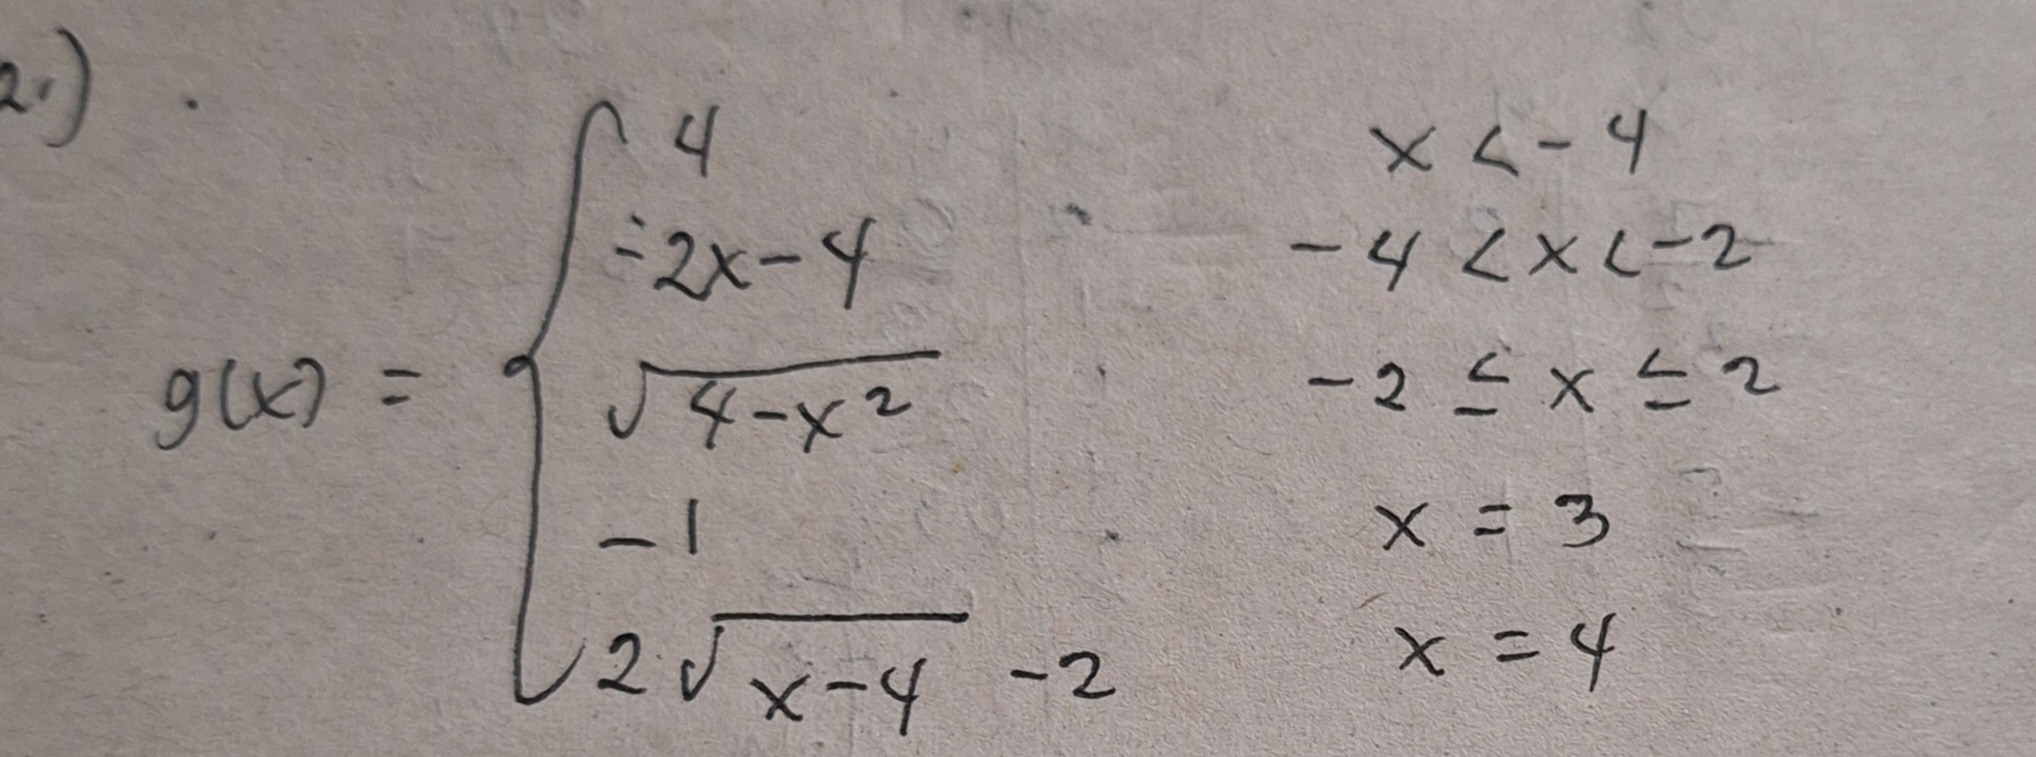 2.)
g(x) = { 4    x < -4
-2x - 4    -4 < x < -2
√(4 - x²)    -2 ≤ x ≤ 2
-1    x = 3
2√(x - 4) - 2    x = 4